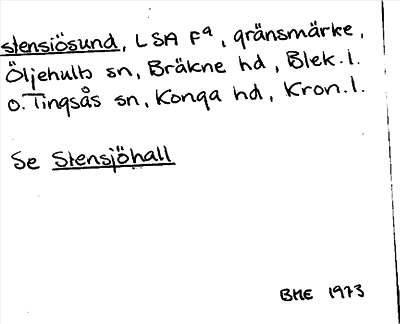 stensiösund, LSA Fa, gränsmärke,
Öljehults sn, Bräkne hd, Blek.l.
o. Tingsås sn, Konga hd, Kron.l.
Se Stensjöhall
BHE 1973